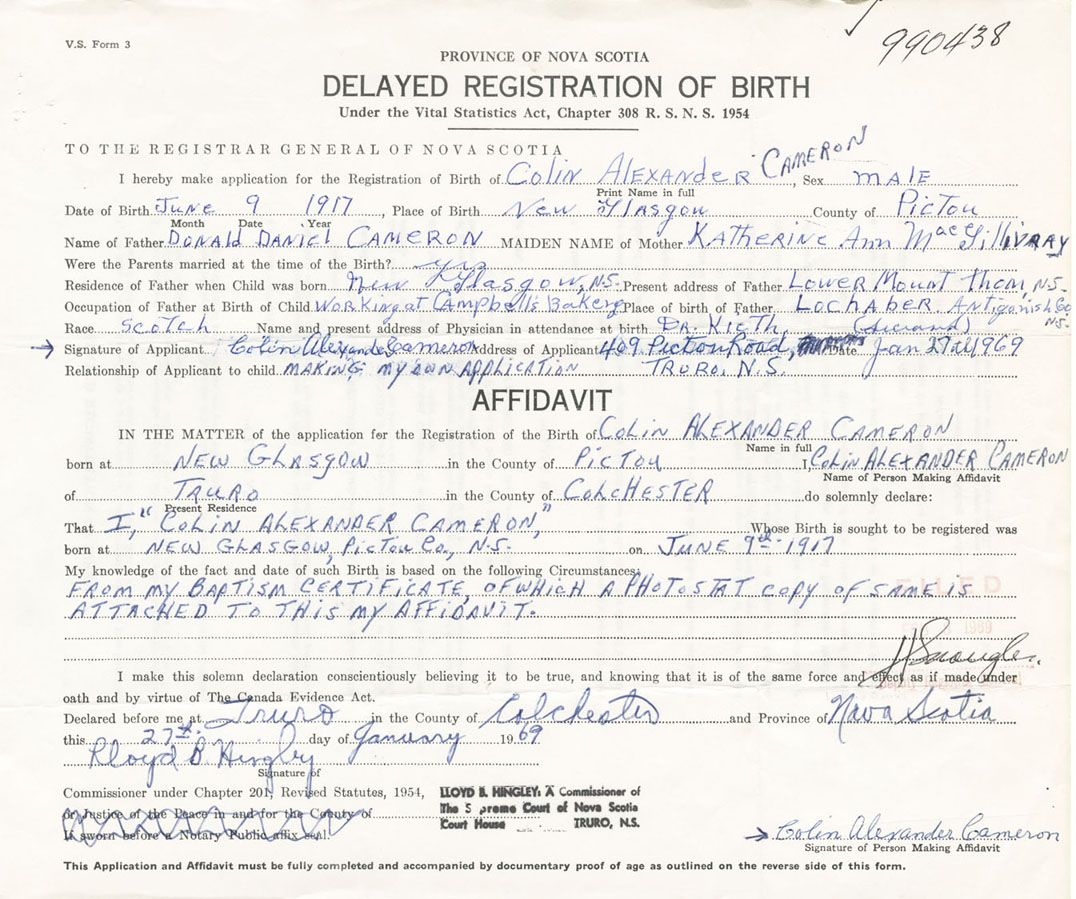 V.S. Form 3
990438
PROVINCE OF NOVA SCOTIA
DELAYED REGISTRATION OF BIRTH
Under the Vital Statistics Act, Chapter 308 R. S. N. S. 1954
TO THE REGISTRAR GENERAL OF NOVA SCOTIA
I hereby make application for the Registration of Birth of Colin Alexander Cameron, Sex male
Print Name in full
Date of Birth June 9 1917, Place of Birth New Glasgow County of Pictou
Month Date Year
Name of Father Donald Daniel Cameron MAIDEN NAME of Mother Katherine Ann MacGillivray
Were the Parents married at the time of the Birth? yes
Residence of Father when Child was born New Glasgow, N.S. Present address of Father Lower Mount Thom, N.S.
Occupation of Father at Birth of Child Working at Campbell's Bakery Place of birth of Father Lochaber Antigonish Co N.S.
Race Scotch Name and present address of Physician in attendance at birth Dr. Kieth,
Signature of Applicant Colin Alexander Cameron Address of Applicant 409 Pictou Road, Date Jan 27th 1969
Relationship of Applicant to child. MAKING my own APPLICATION TRURO, N.S.
AFFIDAVIT
IN THE MATTER of the application for the Registration of the Birth of COLIN ALEXANDER CAMERON
Name in full
born at NEW GLASGOW in the County of PICTOU I, COLIN ALEXANDER CAMERON
Name of Person Making Affidavit
of TRURO in the County of COLCHESTER do solemnly declare:
Present Residence
That I, "COLIN ALEXANDER CAMERON," Whose Birth is sought to be registered was
born at NEW GLASGOW, PICTOU Co., N.S. on JUNE 9th 1917
My knowledge of the fact and date of such Birth is based on the following Circumstances:
FROM MY BAPTISM CERTIFICATE, OF WHICH A PHOTOSTAT COPY OF SAME IS
ATTACHED TO THIS MY AFFIDAVIT.
FILED
I make this solemn declaration conscientiously believing it to be true, and knowing that it is of the same force and effect as if made under
oath and by virtue of The Canada Evidence Act.
Declared before me at Truro in the County of Colchester and Province of Nova Scotia
this 27th. day of January 1969
Lloyd B. Hingley
Signature of
Commissioner under Chapter 201, Revised Statutes, 1954,
or Justice of the Peace in and for the County of
If sworn before a Notary Public affix seal
LLOYD B. HINGLEY: A Commissioner of
The Supreme Court of Nova Scotia
Court House TRURO, N.S.
Colin Alexander Cameron
Signature of Person Making Affidavit
This Application and Affidavit must be fully completed and accompanied by documentary proof of age as outlined on the reverse side of this form.